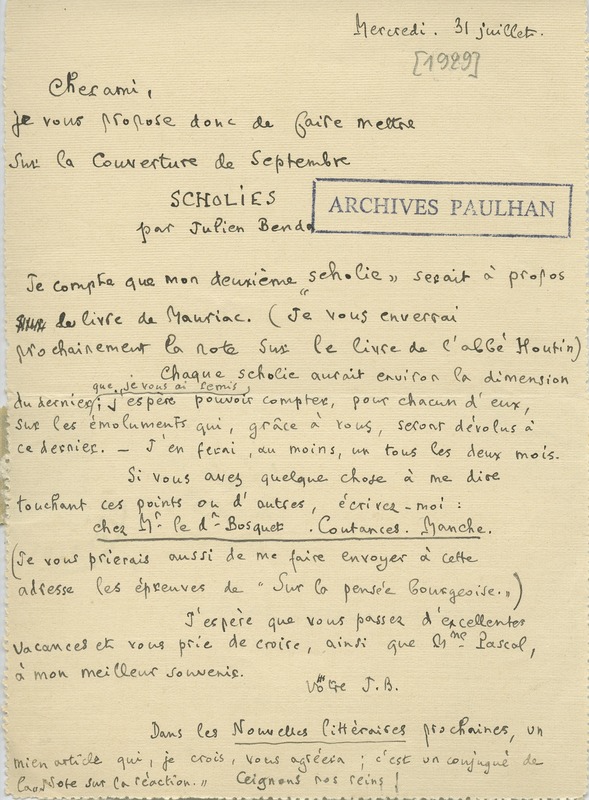 Mercredi. 31 juillet.
[1929]
Cher ami,
je vous propose donc de faire mettre
sur la Couverture de Septembre
SCHOLIES
ARCHIVES PAULHAN
par Julien Benda
Je compte que mon deuxième "scholie" serait à propos
de livre de Mauriac. (Je vous enverrai
prochainement la note sur le livre de l'abbé Houtin)
Chaque scholie aurait environ la dimension
que je vous ai remis,
du dernier ; j'espère pouvoir compter, pour chacun d'eux,
sur les émoluments qui, grâce à vous, seront dévolus à
ce dernier. — J'en ferai, au moins, un tous les deux mois.
Si vous avez quelque chose à me dire
touchant ces points ou d'autres, écrivez-moi :
chez Mr le dr Bosquet. Coutances. Manche.
(Je vous prierais aussi de me faire envoyer à cette
adresse les épreuves de "Sur la pensée bourgeoise.")
J'espère que vous passez d'excellentes
vacances et vous prie de croire, ainsi que Mme Pascal,
à mon meilleur souvenir.
Vôtre J.B.
Dans les Nouvelles littéraires prochaines, un
mien article qui, je crois, vous agréera ; c'est un conjugué de
la "Note sur la réaction." Ceignons nos reins !